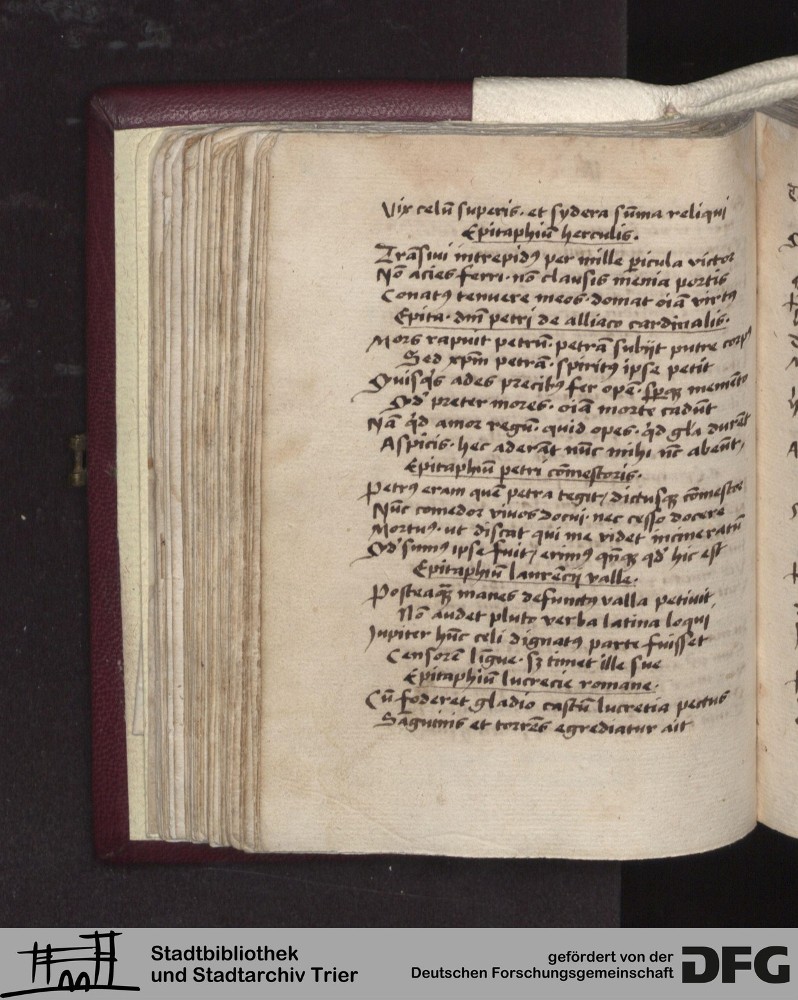 Vix celū superis· et sydera sūma reliqui
Epitaphiū herculis.
Trāsiui intrepidꝰ per mille pericula victor
Nō acies ferri· nō clausis menia portis
Conatꝰ tenuere meos· domat oīa virtꝰ
Epita· dn̄i petri de alliaco cardinalis·
Mors rapuit petrū· petrā subijt putre corpꝰ
Sed xp̄m petrā· spiritꝰ ipse petit
Quisqͥs ades precibꝰ fer opē· sꝑqꝫ memēto
Qd̓ preter mores· oīa morte cadūt
Nā qͥd amor regū· quid opes· qͥd gl̄a durēt
Aspicis· hec aderāt nūc mihi nūc abeūt,
Epitaphiū petri cōmestoris·
Petrꝰ eram quē petra tegit/ dictusqꝫ cōmestor
Nūc comedor viuus docui· nec cesso docere
Mortuꝰ· ut dicat qui me videt incineratū
Qd̓ sumꝰ ipse fuit/ erimꝰ qn̄qꝫ qd̓ hic est
Epitaphiū laurēcij valle·
Posteaqꝫ manes defunctꝰ valla petiuit,
Nō audet pluto verba latina loqui
Jupiter hūc celi dignatꝰ parte fuisset
Censorē līgue· sꝫ timet ille sue
Epitaphiū lucrecie romane·
Cū foderet gladio castū lucretia pectus
Sāguinis et torrēs egrediatur ait
Stadtbibliothek
und Stadtarchiv Trier
gefördert von der
Deutschen Forschungsgemeinschaft
DFG